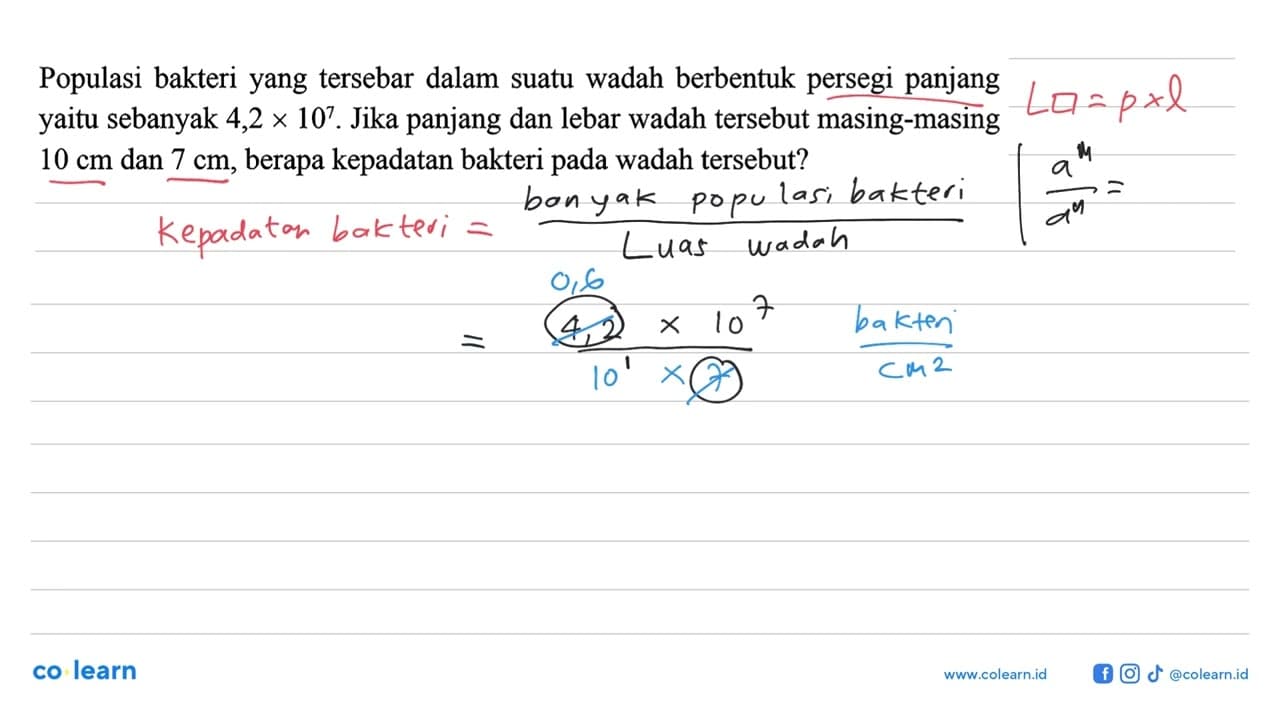 Populasi bakteri yang tersebar dalam suatu wadah berbentuk persegi panjang
yaitu sebanyak 4,2 × 10⁷. Jika panjang dan lebar wadah tersebut masing-masing
10 cm dan 7 cm, berapa kepadatan bakteri pada wadah tersebut?
L▭ = p × l
aᵐ
aⁿ =
Kepadatan bakteri = banyak populasi bakteri
Luas wadah
0,6
= 4,2 × 10⁷ bakteri
10¹ × 7 cm²
co learn
www.colearn.id @colearn.id